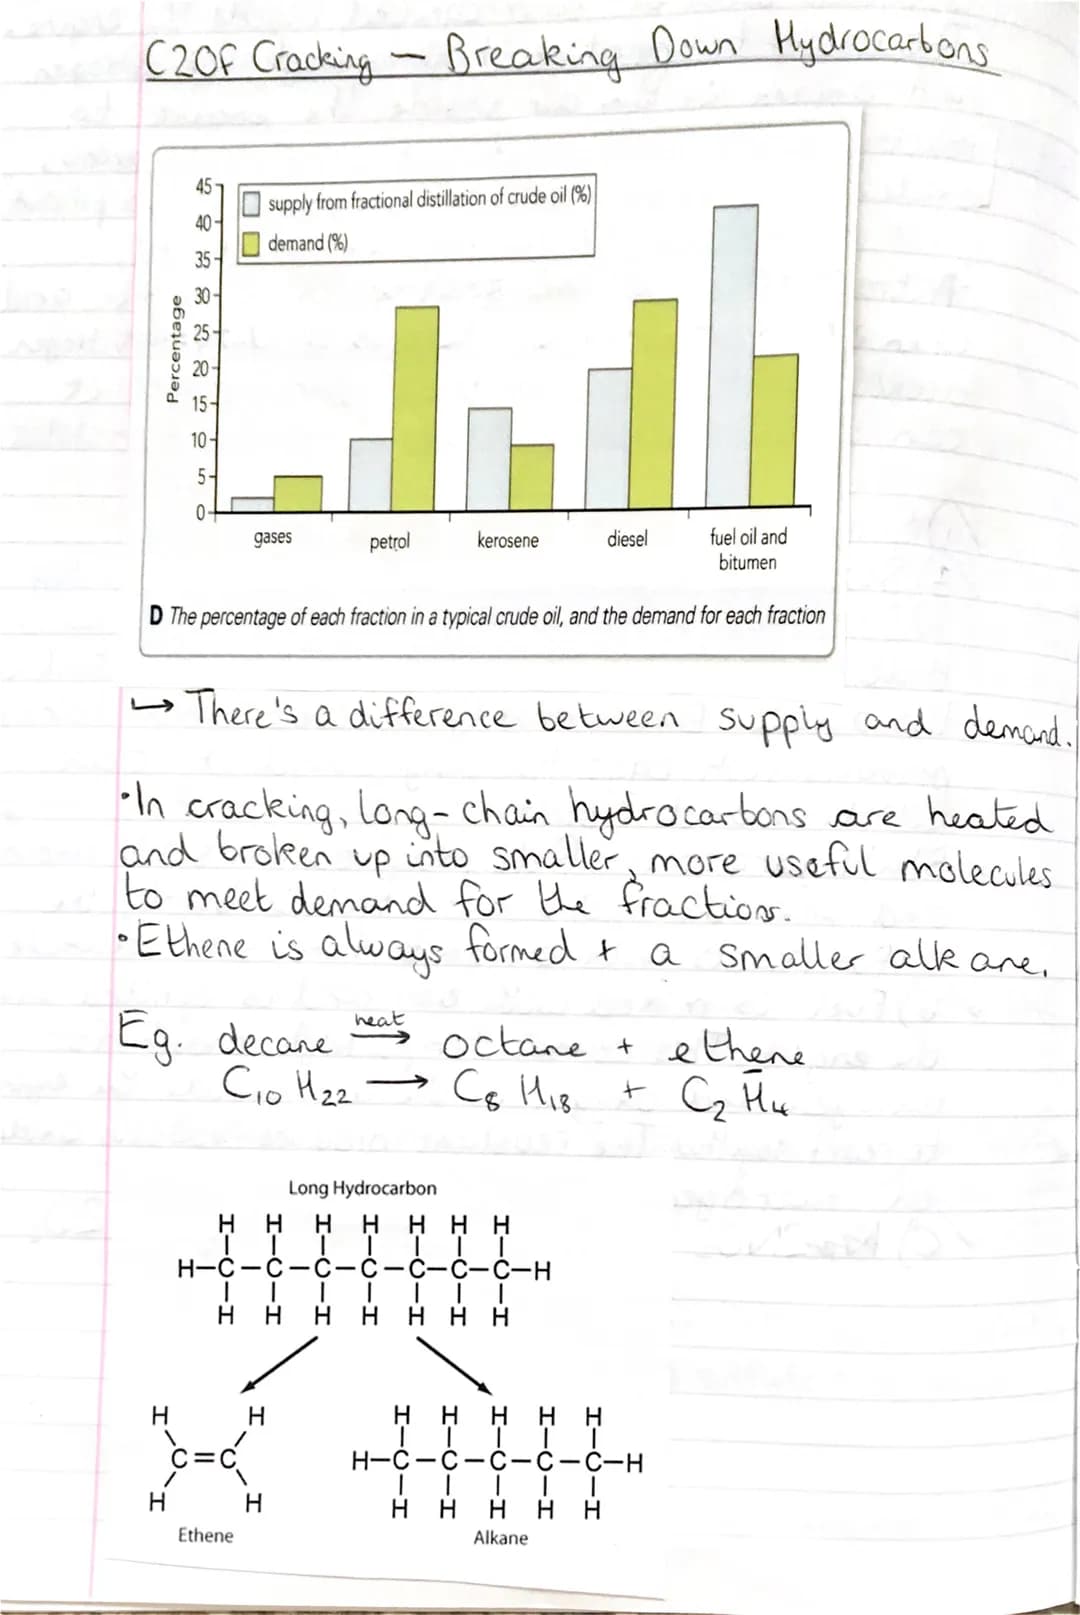 C20F Cracking – Breaking Down Hydrocarbons
45
40
35
30
25
20
15
10
5
0
Percentage
supply from fractional distillation of crude oil (%)
demand (%)
gases petrol kerosene diesel fuel oil and bitumen
D The percentage of each fraction in a typical crude oil, and the demand for each fraction
↳ There's a difference between supply and demand.
•In cracking, long-chain hydrocarbons are heated
and broken up into smaller, more useful molecules
to meet demand for the fractions.
•Ethene is always formed + a smaller alkane.
Eg. decane heat→ octane + ethene
C₁₀H₂₂ → C₈H₁₈ + C₂H₄
Long Hydrocarbon
H H H H H H H
H-C-C-C-C-C-C-C-H
H H H H H H H
H H
C=C
H H
Ethene
H H H H H
H-C-C-C-C-C-H
H H H H H
Alkane